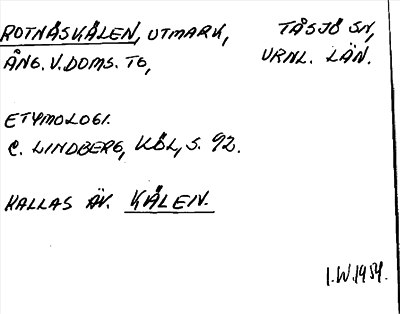 ROTNÅSKÅLEN, UTMARK, TÅSJÖ SN,
ÅNG. V. DOMS. TG, VRNL. LÄN.
ETYMOLOGI.
C. LINDBERG, KÖL, S. 92.
KALLAS ÄV. KÅLEN.
I.W. 1954.